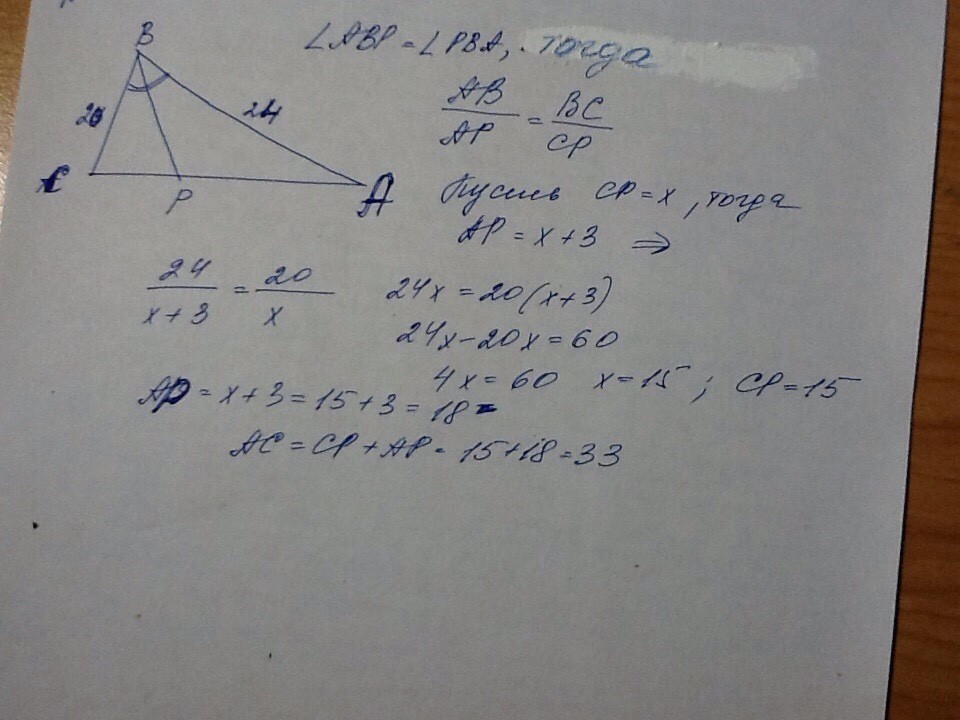 B
20
24
C
P
A
∠ABP = ∠PBA, тогда
AB/AP = BC/CP
Пусть CP = x, тогда
AP = x + 3 ⇒
24/(x + 3) = 20/x
24x = 20(x + 3)
24x - 20x = 60
4x = 60 x = 15; CP = 15
AP = x + 3 = 15 + 3 = 18
AC = CP + AP = 15 + 18 = 33